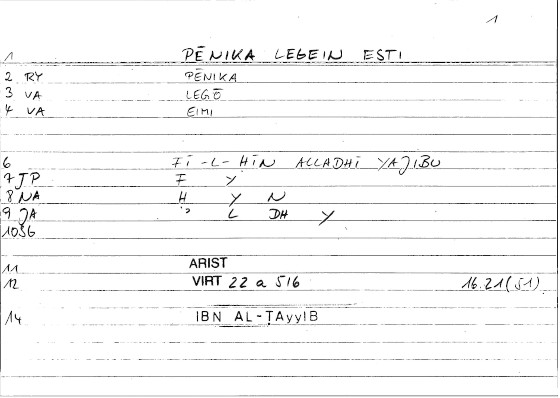 1
1 PĒNIKA LEGEIN ESTI
2 RY PĒNIKA
3 VA LEGŌ
4 VA EIMI
6 FĪ-L-HĪN ALLADHĪ YAJIBU
7 JP F Y
8 NA H Y N
9 JA ʾ L DH Y
10 SG
11 ARIST
12 VIRT 22 a 5/6 16.21 (S1)
14 IBN AL-ṬAyyIB